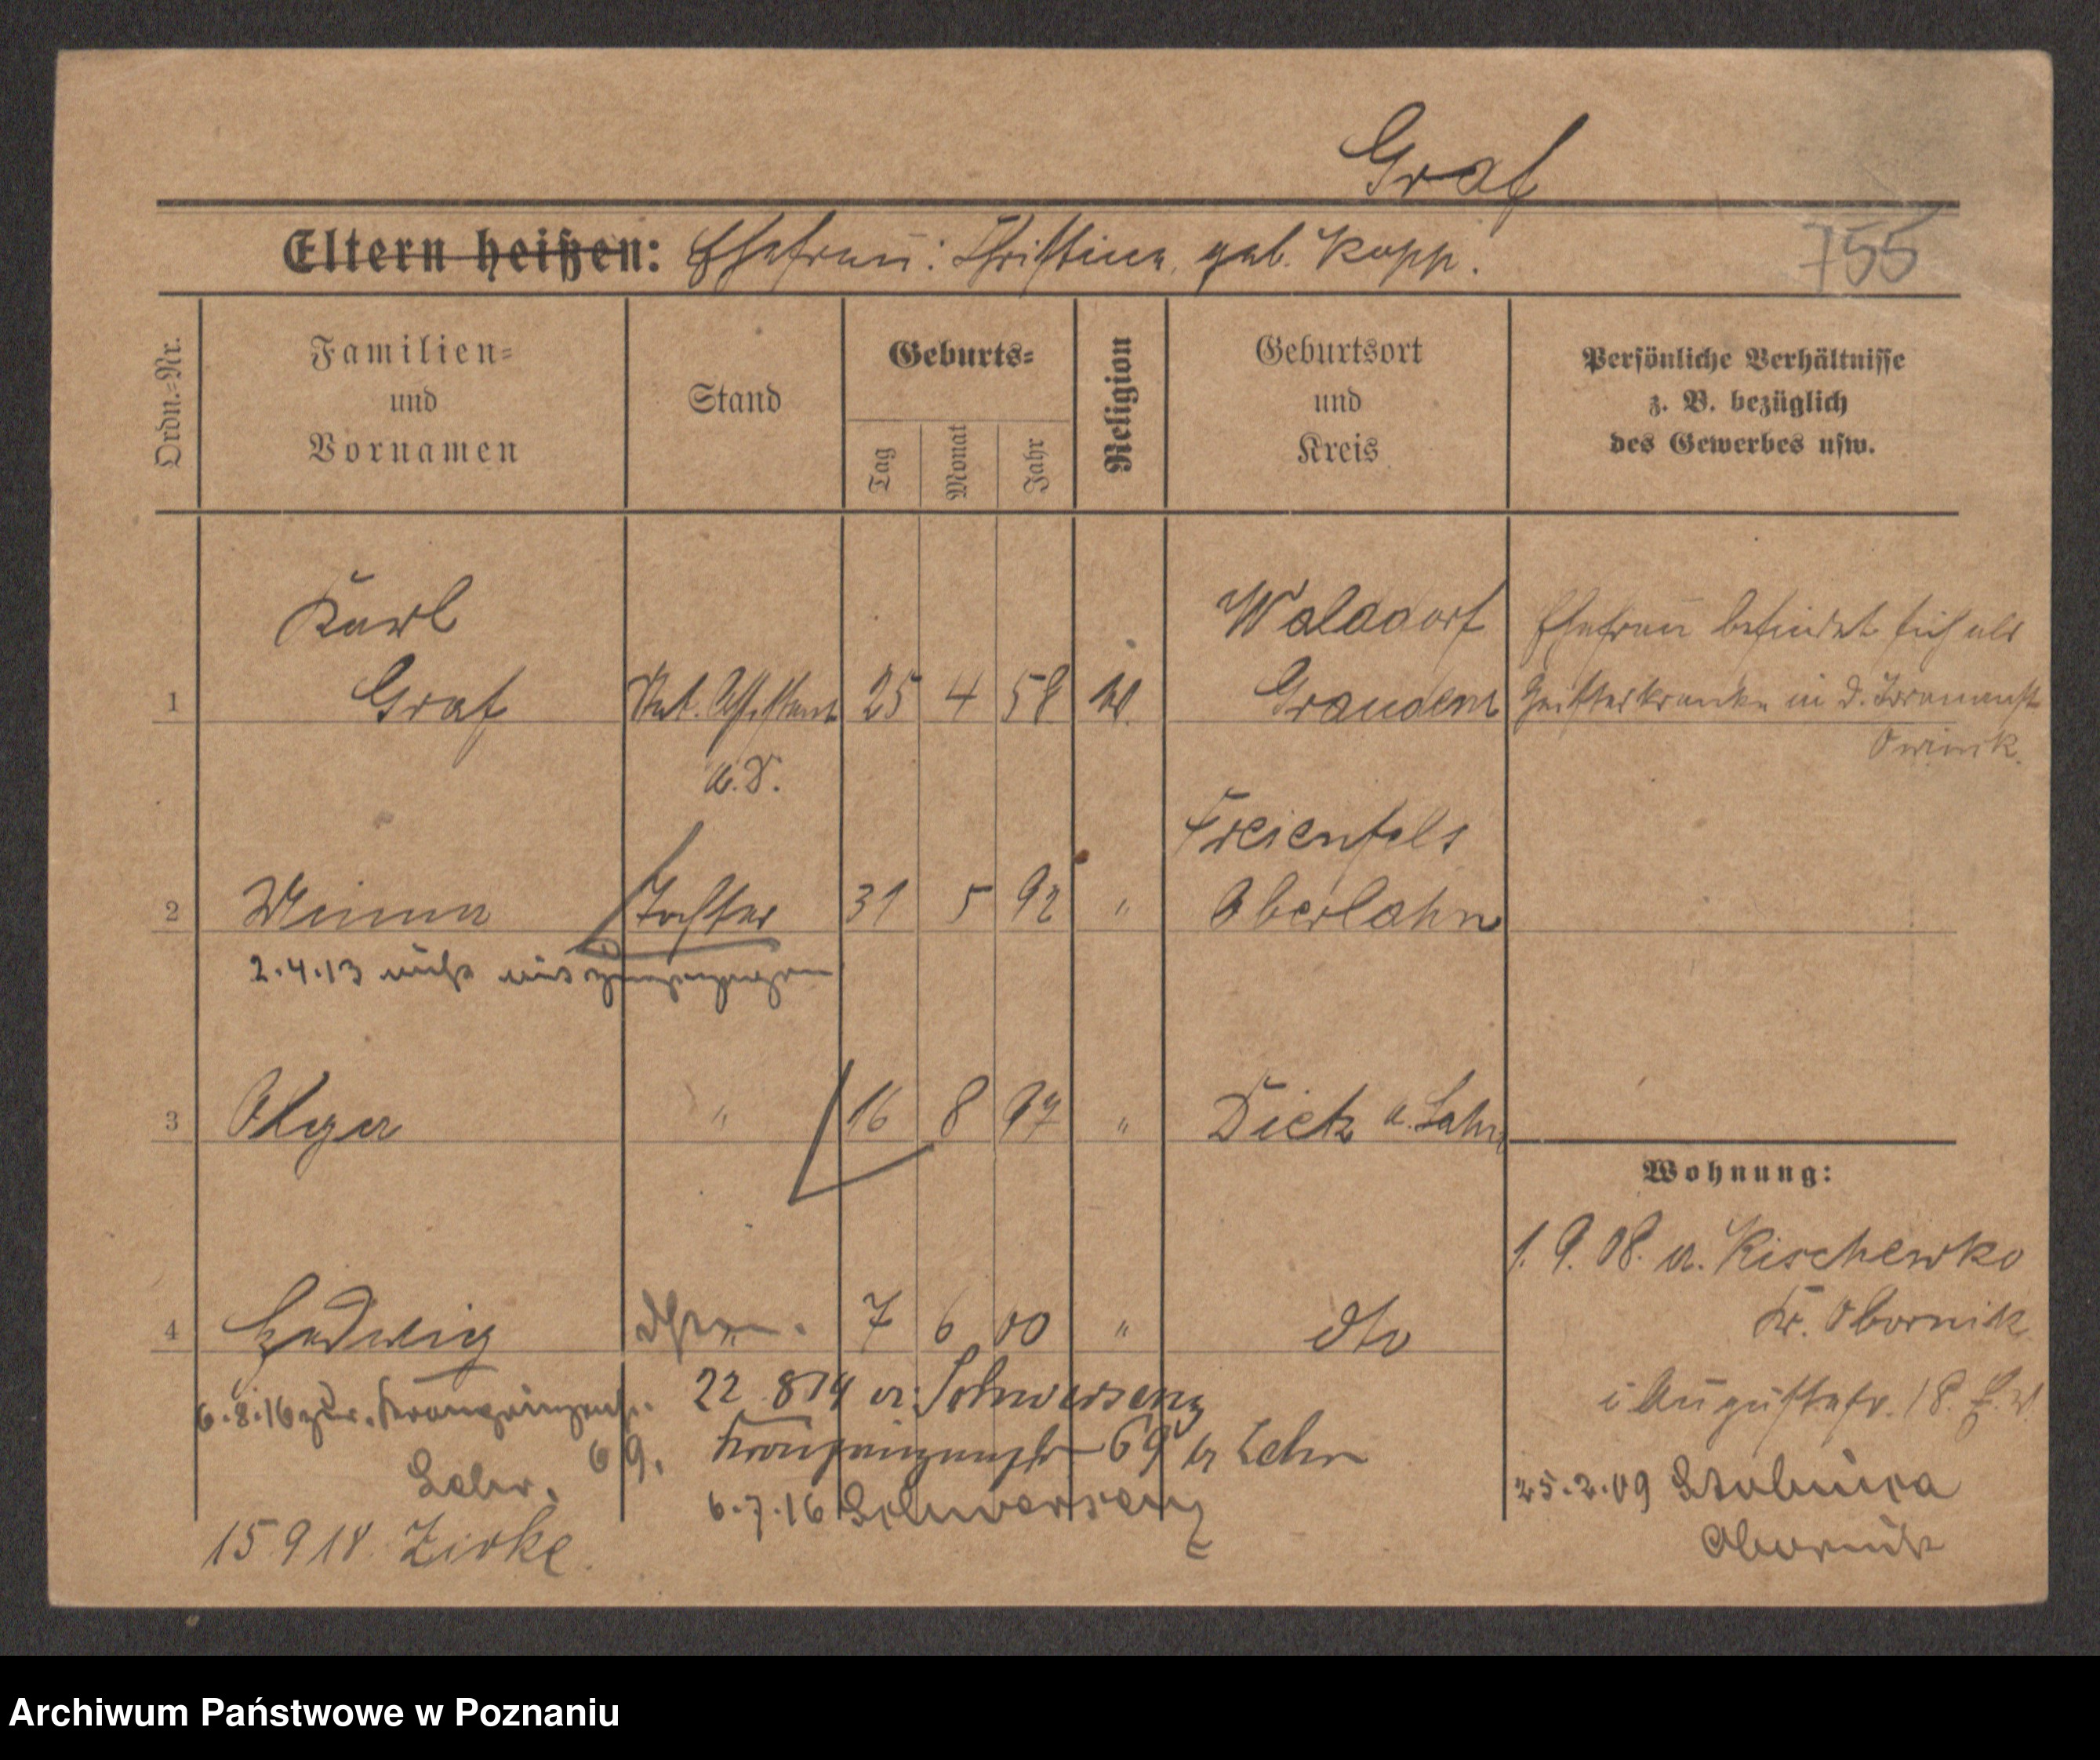 Graf
Eltern heißen: Ehefrau: Christine, geb. Kopp.
755
Ordn.-Nr.
Familien-
und
Vornamen
Stand
Geburts-
Tag
Monat
Jahr
Religion
Geburtsort
und
Kreis
Persönliche Verhältnisse
z. B. bezüglich
des Gewerbes usw.
Karl Walddorf Ehefrau befindet sich als
1 Graf Assistent 25 4 58 Graudenz Geisteskranke in d. Irrenanst.
a. D. Owinsk.
Freienfels
2 Minna Tochter 31 5 92 " Oberlahn
2.4.13 nicht mit zugezogen
3 Olga " 16 8 97 " Dietz a. Lahn
Wohnung:
1.9.08. a. Kischewko
Kr. Obornik
4 Hedwig " 7 6 00 " dto
i Augustastr. 18.
6.8.16 zur. Kronprinzenstr. 69.
Lehr.
22 8 14 a: Schwersenz
Kronprinzenstr 69 b Lehr
6.7.16 Schwersenz
25.2.09
Obornik
15 9 18. Zirke.
Archiwum Państwowe w Poznaniu